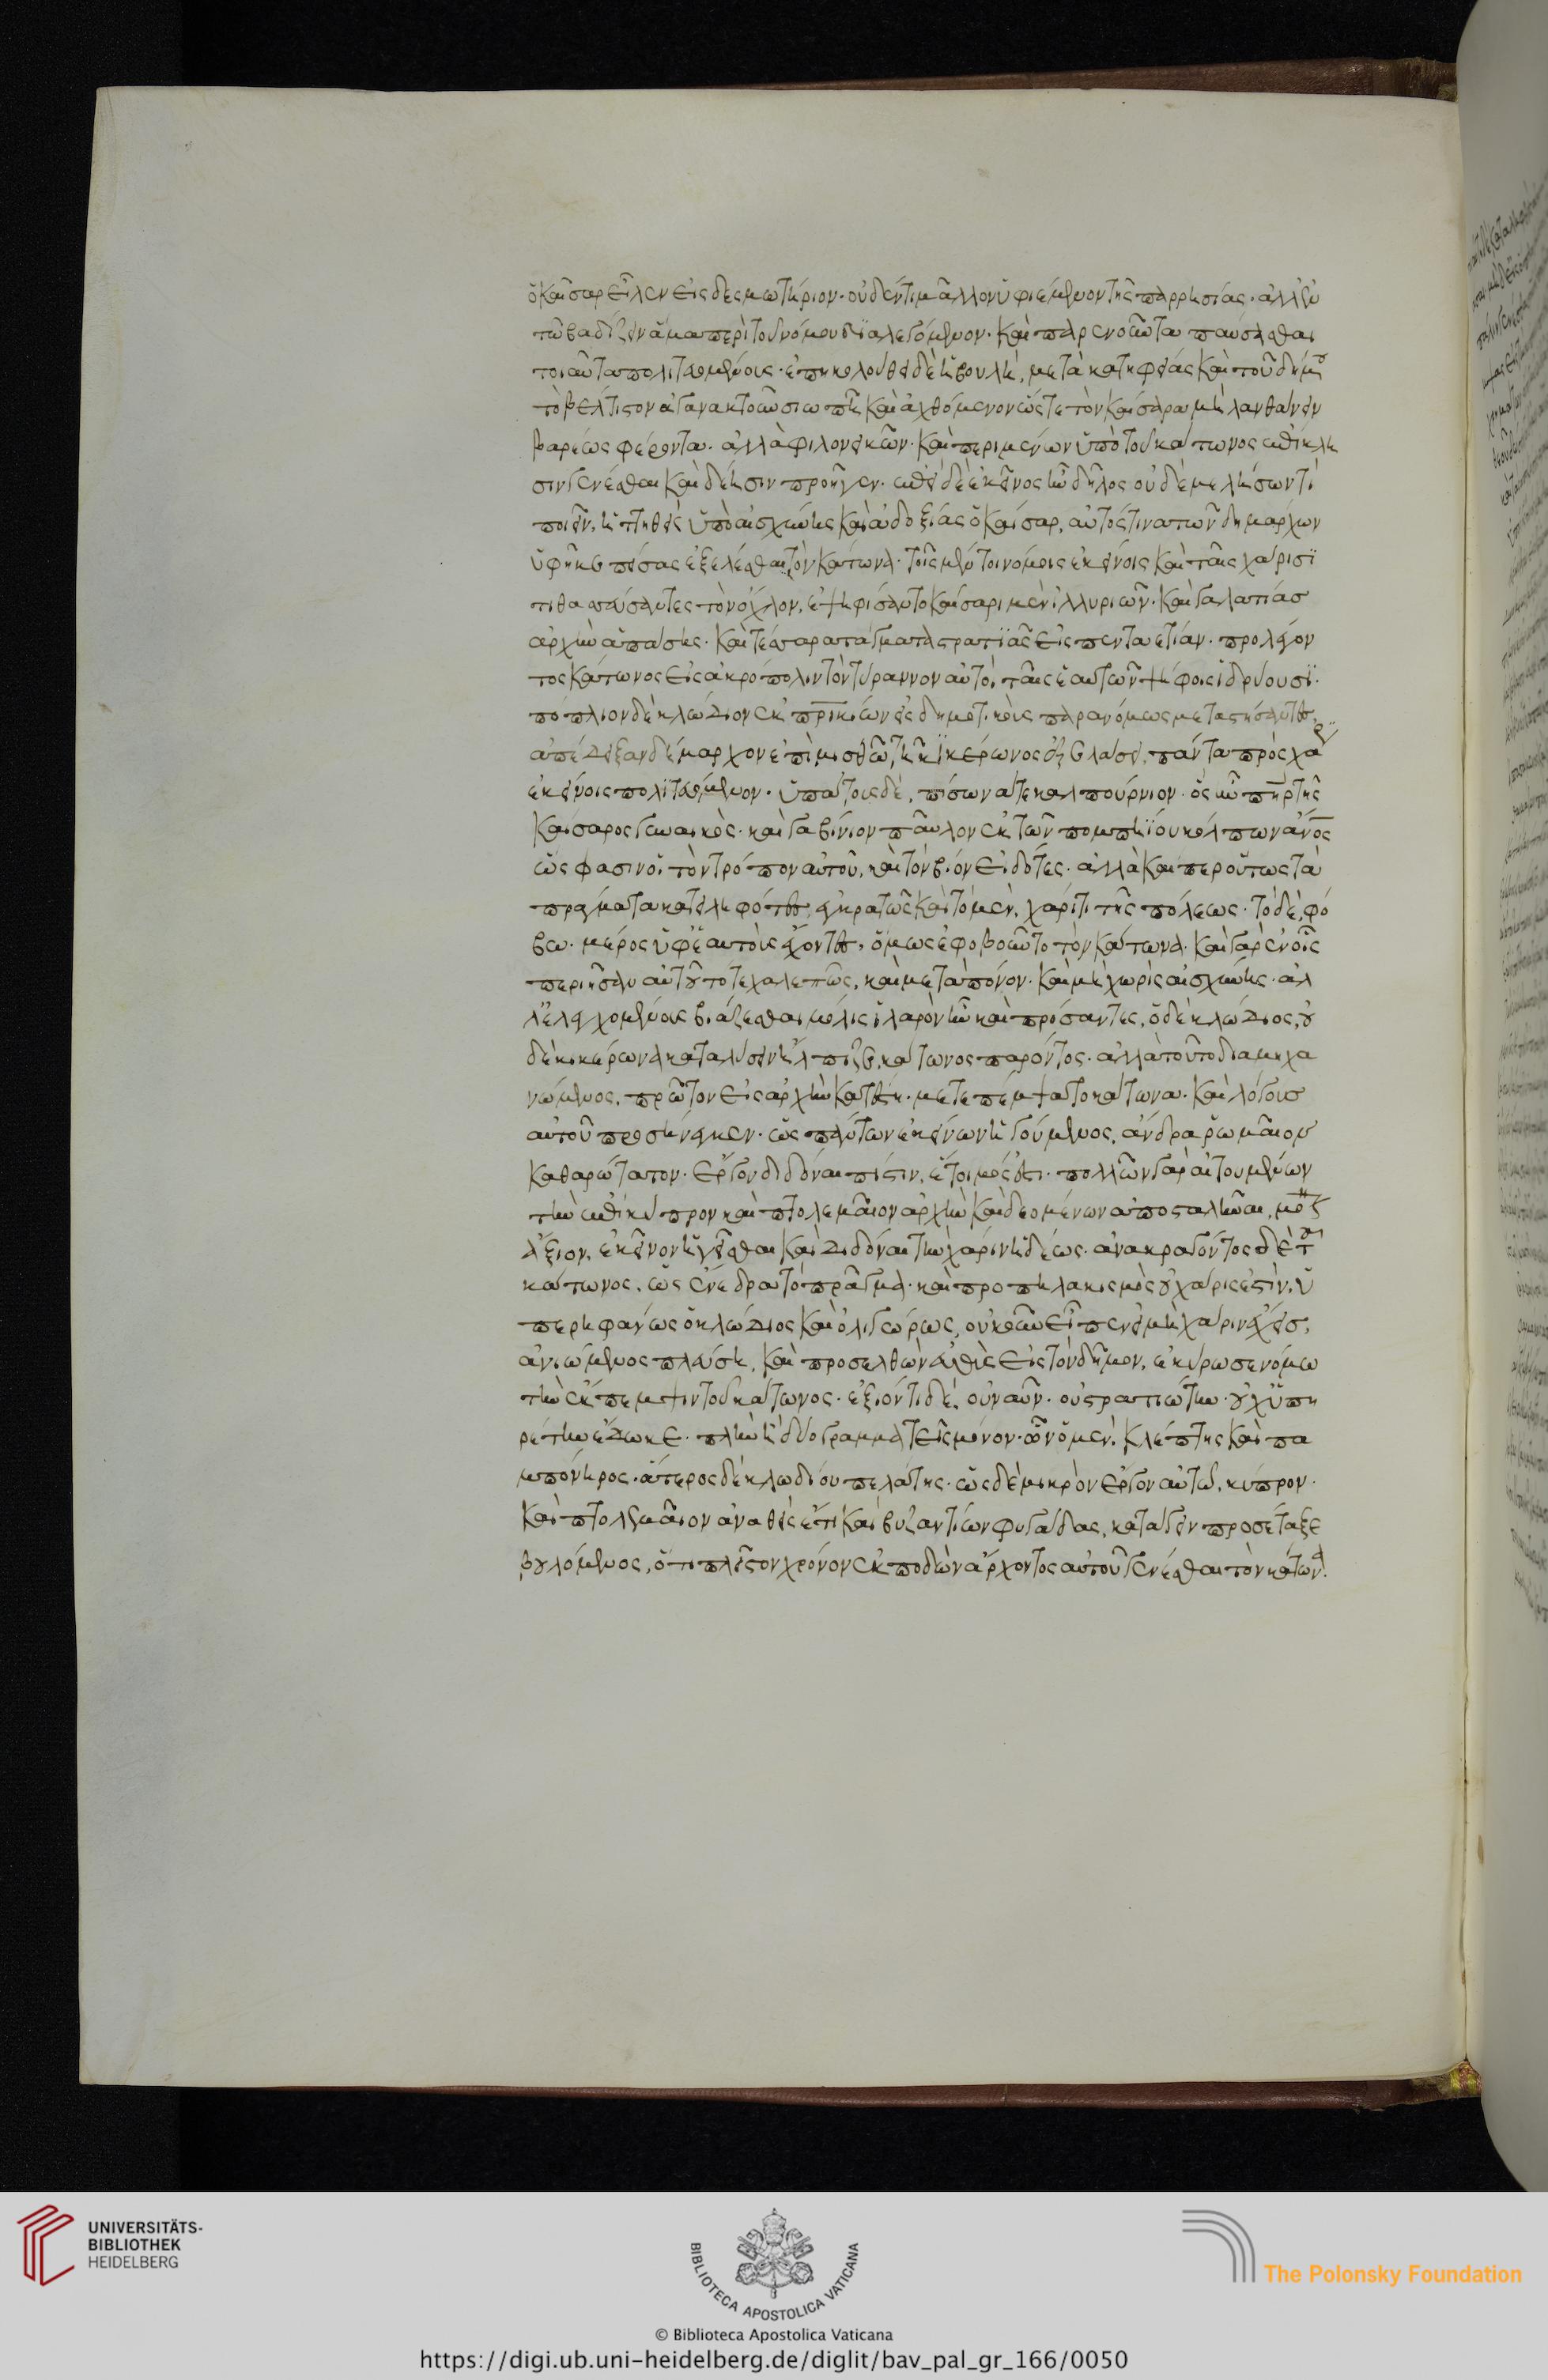 ὁ καῖσαρ εἷλκεν εἰς δεσμωτήριον· οὐδέν τι μᾶλλον ὑφιέμενον τῆς παρρησίας· ἀλλ' ἐν
τῶ βαδίζειν ἅμα περὶ τοῦ νόμου διαλεγόμενον· καὶ παρενοῶντα παύσασθαι
τοιαῦτα πολιτευομένους· ἐπηκολούθει δὲ ἡ βουλή, μετὰ κατηφείας καὶ τοῦ δήμου
τὸ βέλτιστον ἀγανακτοῦν σιωπῆ καὶ ἀχθόμενον ὥστε τὸν καίσαρα μὴ λανθάνειν
βαρέως φέροντα. ἀλλὰ φιλονεικῶν· καὶ περιμένων ὑπὸ τοῦ κάτωνος ἐπίκλη
σιν γενέσθαι καὶ δέησιν προῆγεν· ἐπεὶ δὲ ἐκεῖνος ἦν δῆλος οὐδὲ μελλήσων τι
ποιεῖν, ἡττηθεὶς ὑπὸ αἰσχύνης καὶ ἀδοξίας ὁ καίσαρ, αὐτός τινα τῶν δημάρχων
ὑφῆκε πείσας ἐξελέσθαι τὸν κάτωνα· τοῖς μέντοι νόμοις ἐκείνοις καὶ ταῖς χάρισι
τιθασεύσαντες τὸν ὄχλον, ἐψηφίσαντο καίσαρι μὲν ἰλλυριῶν· καὶ γαλατίας
ἀρχὴν ἁπάσης· καὶ τέσσαρα τάγματα στρατιᾶς εἰς πενταετίαν· προλέγον
τος κάτωνος εἰς ἀκρόπολιν τὸν τύραννον αὐτοὶ ταῖς ἑαυτῶν ψήφοις ἱδρύουσι·
πόπλιον δὲ κλώδιον ἐκ πρικίων εἰς δημοτικοὺς παρανόμως μεταστήσαντες,
ἀπέδειξαν δήμαρχον ἐπὶ μισθῶ, τῆ κικέρωνος ἐξελάσει, πάντα πρὸς χάριν
ἐκείνοις πολιτευόμενον· ὑπάτους δὲ, πίσωνά τε καλπούρνιον· ὃς ἦν πηρ τῆς
καίσαρος γυναικός· καὶ γαβίνιον παῦλον ἐκ τῶν πομπηίου κόλπων ἄνος
ὥς φασιν οἱ τὸν τρόπον αὐτοῦ, καὶ τὸν βίον εἰδότες· ἀλλὰ καίπερ οὕτως τὰ
πράγματα κατειληφότες ἐγκρατῶς καὶ τὸ μὲν, χάριτι τῆς πόλεως· τὸ δὲ, φό
βω· μέρος ὑφ' ἑαυτοῖς ἔχοντες, ὅμως ἐφοβοῦντο τὸν κάτωνα· καὶ γὰρ ἐν οἷς
περιῆσαν αὐτοῦ ποτε χαλεπῶς, καὶ μετὰ πόνον· καὶ μὴ χωρὶς αἰσχύνης· ἀλ
λ' ἐλεγχομένοις βιάζεσθαι μόλις ἱλαρὸν ἦν καὶ πρόσαντες, ὁ δὲ κλώδιος, οὐ
δὲ κικέρωνα καταλύσειν ἤλπιζε, κάτωνος παρόντος· ἀλλὰ τοῦτο διαμηχα
νώμενος, πρῶτον εἰς ἀρχὴν κατέστη· μετεπέμψατο κάτωνα· καὶ λόγους
αὐτοῦ προσήνεγκεν· ὡς πάντων ἐκείνων ἡγούμενος, ἄνδρα ῥωμαίων
καθαρώτατον· ἔργον διδόναι πίστιν, ἕτοιμός ἐστι· πολλῶν γὰρ αἰτουμένων
τὴν ἐπὶ κύπρον καὶ πτολεμαῖον ἀρχὴν καὶ δεομένων ἀποσταλῆναι, μόνον
ἄξιον, ἐκεῖνον ἡγεῖσθαι καὶ διδόναι τὴν χάριν ἡδέως· ἀνακραγόντος δὲ τοῦ
κάτωνος, ὡς ἐνέδρα τὸ πρᾶγμα· καὶ προπηλακισμὸς οὐ χάρις ἐστὶν, ὑ
περηφάνως ὁ κλώδιος καὶ ὀλιγώρως, οὐκοῦν εἶπεν εἰ μὴ χάριν ἔχεις,
ἀνιώμενος πλεύση, καὶ προσελθὼν εὐθὺς εἰς τὸν δῆμον, ἐκύρωσε νόμω
τὴν ἔκπεμψιν τοῦ κάτωνος· ἐξιόντι δέ, οὐ ναῦν· οὐ στρατιώτην· οὐχ ὑπη
ρέτην ἔδωκε· πλὴν ἢ δύο γραμματεῖς μόνον· ὧν ὁ μὲν, κλέπτης καὶ πα
μπόνηρος· ἅτερος δὲ κλωδίου πελάτης· ὡς δὲ μικρὸν ἔργον αὐτῶ, κύπρον·
καὶ πτολεμαῖον ἀναθεὶς ἔτι καὶ βυζαντίων φυγάδας, κατάγειν προσέταξε
βουλόμενος, ὅτι πλεῖστον χρόνον ἐκποδὼν ἄρχοντος αὐτοῦ γενέσθαι τὸν κάτωνα.
UNIVERSITÄTS-
BIBLIOTHEK
HEIDELBERG
BIBLIOTECA APOSTOLICA VATICANA
The Polonsky Foundation
© Biblioteca Apostolica Vaticana
https://digi.ub.uni-heidelberg.de/diglit/bav_pal_gr_166/0050